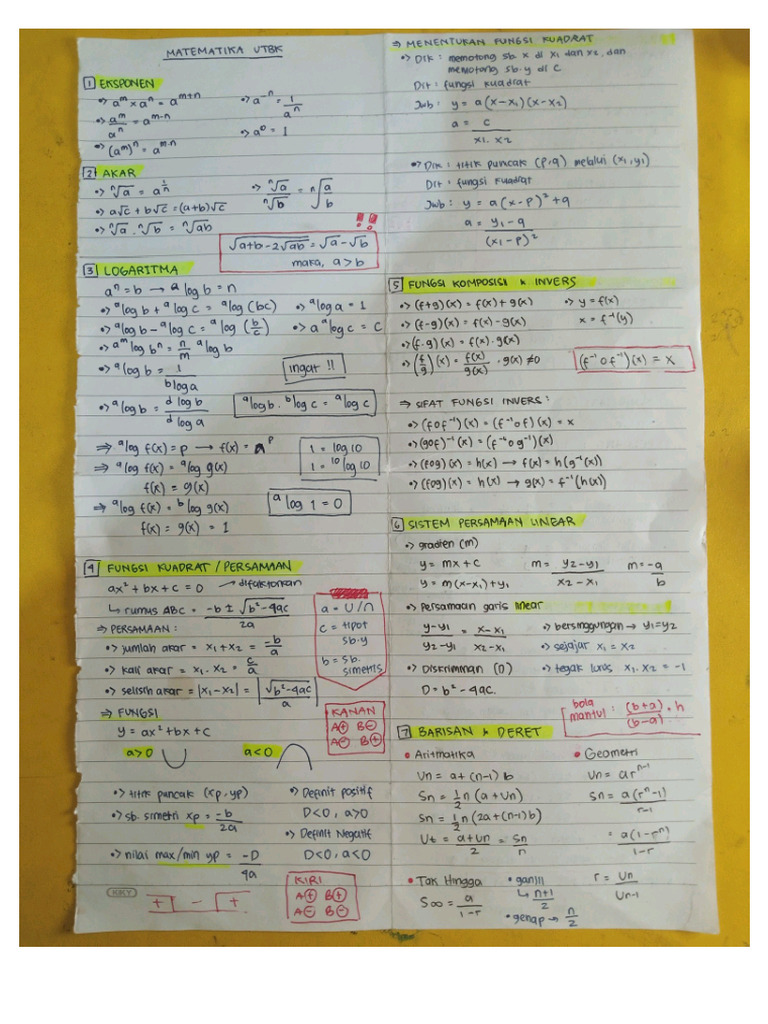 MATEMATIKA UTBK
1 EKSPONEN
•> aᵐ × aⁿ = aᵐ⁺ⁿ
•> a⁻ⁿ = 1/aⁿ
•> aᵐ/aⁿ = aᵐ⁻ⁿ
•> a⁰ = 1
•> (aᵐ)ⁿ = aᵐ·ⁿ
2 AKAR
•> ⁿ√a = a^(1/n)
•> ⁿ√a / ⁿ√b = ⁿ√(a/b)
•> a√c + b√c = (a+b)√c
•> ⁿ√a . ⁿ√b = ⁿ√ab
!!
√(a+b-2√ab) = √a - √b
maka, a > b
3 LOGARITMA
aⁿ = b → ᵃlog b = n
•> ᵃlog b + ᵃlog c = ᵃlog (bc)
•> ᵃlog a = 1
•> ᵃlog b - ᵃlog c = ᵃlog (b/c)
•> a ᵃlog c = c
•> aᵐ log bⁿ = n/m ᵃlog b
•> ᵃlog b = 1 / ᵇlog a
ingat !!
•> ᵃlog b = ᵈlog b / ᵈlog a
ᵃlog b . ᵇlog c = ᵃlog c
⇒ ᵃlog f(x) = p → f(x) = aᵖ
⇒ ᵃlog f(x) = ᵃlog g(x)
f(x) = g(x)
⇒ ᵃlog f(x) = ᵇlog g(x)
f(x) = g(x) = 1
1 = log 10
1 = ¹⁰log 10
ᵃlog 1 = 0
4 FUNGSI KUADRAT / PERSAMAAN
ax² + bx + c = 0 → difaktorkan
↳ rumus ABC = (-b ± √(b²-4ac)) / 2a
⇒ PERSAMAAN :
•> jumlah akar = x₁ + x₂ = -b/a
•> kali akar = x₁ . x₂ = c/a
•> selisih akar = |x₁ - x₂| = |√(b²-4ac) / a|
a = U / ∩
c = tipot
sb.y
b = sb.
simetris
⇒ FUNGSI
y = ax² + bx + c
a>0
a<0
KANAN
A⊕ B⊖
A⊖ B⊕
•> titik puncak (xp, yp)
•> sb. simetri xp = -b/2a
•> nilai max/min yp = -D/4a
•> Definit positif
D<0, a>0
•> Definit Negatif
D<0, a<0
KIRI
A⊕ B⊕
A⊖ B⊖
KKY
+ - +
⇒ MENENTUKAN FUNGSI KUADRAT
•> Dik : memotong sb x di x₁ dan x₂, dan
memotong sb.y di c
Dit : fungsi kuadrat
Jwb : y = a(x-x₁)(x-x₂)
a = c / x₁ . x₂
•> Dik : titik puncak (p,q) melalui (x₁,y₁)
Dit : fungsi kuadrat
Jwb : y = a(x-p)² + q
a = (y₁-q) / (x₁-p)²
5 FUNGSI KOMPOSISI & INVERS
•> (f+g)(x) = f(x) + g(x)
•> y = f(x)
•> (f-g)(x) = f(x) - g(x)
x = f⁻¹(y)
•> (f.g)(x) = f(x) . g(x)
•> (f/g)(x) = f(x)/g(x) . g(x) ≠ 0
(f⁻¹ o f⁻¹)(x) = x
⇒ SIFAT FUNGSI INVERS :
•> (f o f⁻¹)(x) = (f⁻¹ o f)(x) = x
•> (gof)⁻¹(x) = (f⁻¹ o g⁻¹)(x)
•> (fog)(x) = h(x) → f(x) = h(g⁻¹(x))
•> (fog)(x) = h(x) → g(x) = f⁻¹(h(x))
6 SISTEM PERSAMAAN LINEAR
•> gradien (m)
y = mx + c
m = (y₂-y₁) / (x₂-x₁)
m = -a/b
y = m(x-x₁) + y₁
•> Persamaan garis linear
(y-y₁)/(y₂-y₁) = (x-x₁)/(x₂-x₁)
•> bersinggungan → y₁ = y₂
•> sejajar x₁ = x₂
•> Diskriminan (D)
•> tegak lurus x₁ . x₂ = -1
D = b² - 4ac.
bola
mantul : (b+a)/(b-a) · h
7 BARISAN & DERET
• Aritmatika
Un = a + (n-1) b
Sn = 1/2 n (a + Un)
Sn = 1/2 n (2a + (n-1) b)
Ut = (a + Un)/2 = Sn/n
• Geometri
Un = arⁿ⁻¹
Sn = a(rⁿ-1) / r-1
= a(1-rⁿ) / 1-r
• Tak Hingga
S∞ = a / 1-r
• ganjil
↳ n+1 / 2
• genap → n/2
r = Un / Un-1